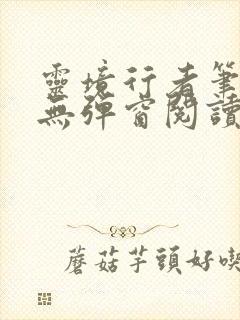 靈境行者筆
無彈窗閱讀
蘑菇芋頭好喫